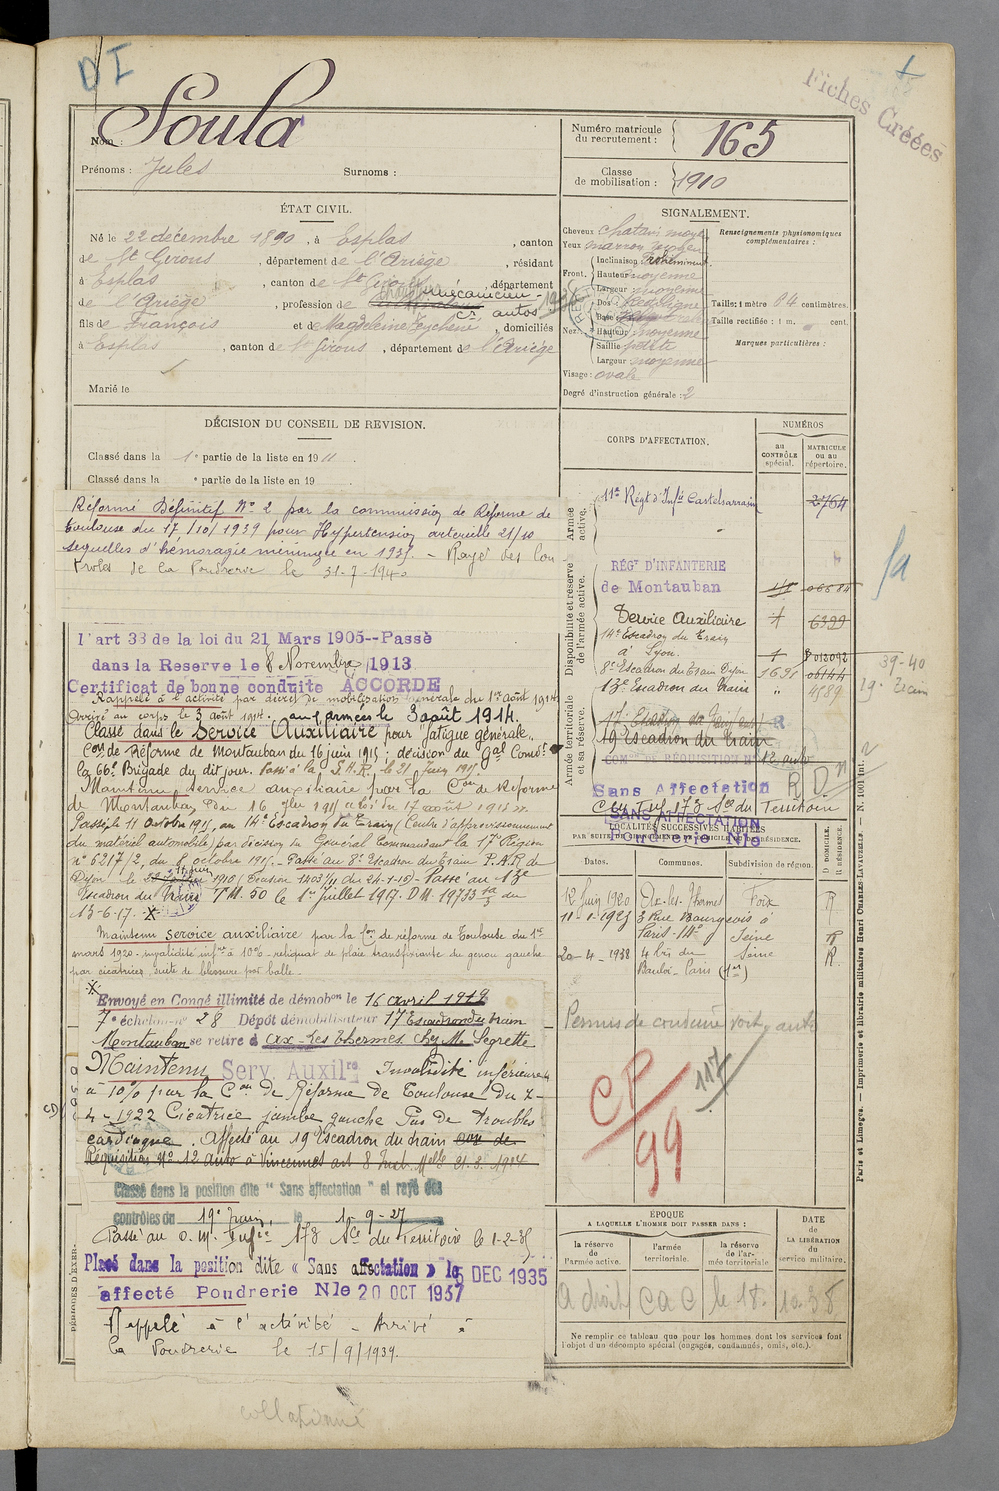 DI
Fiches Créées
Nom : Soula
Prénoms : Jules Surnoms :
Numéro matricule du recrutement : 165
Classe de mobilisation : 1910
ÉTAT CIVIL.
Né le 22 décembre 1890, à Esplas, canton
de St Girons, département de l'Ariège, résidant
à Esplas, canton de St Girons, département
de l'Ariège, profession de mécanicien-
autos
fils de François et de Magdeleine Teychené, domiciliés
à Esplas, canton de St Girons, département de l'Ariège
Marié le
SIGNALEMENT.
Cheveux chatain moyen
Yeux marron
Front. Inclinaison
Hauteur moyenne
Largeur moyenne
Nez. Dos rectiligne
Base
Hauteur moyenne
Saillie petite
Largeur moyenne
Visage : ovale
Degré d'instruction générale : 2
Renseignements physionomiques complémentaires :
Taille : 1 mètre 64 centimètres.
Taille rectifiée : 1 m. cent.
Marques particulières :
DÉCISION DU CONSEIL DE REVISION.
Classé dans la 1e partie de la liste en 1911
Classé dans la e partie de la liste en 19
Réformé Définitif No 2 par la commission de Réforme de
Toulouse du 17/10/1939 pour Hypertension artérielle 21/10
sequelles d'hémoragie méningée en 1937. - Rayé des Con
troles de la Poudrerie le 31-7-1940
l'art 33 de la loi du 21 Mars 1905--Passé
dans la Reserve le 8 Novembre 1913
Certificat de bonne conduite ACCORDE
Rappelé à l'activité par décret de mobilisation Générale du 1er août 1914
Arrivé au corps le 3 août 1914. aux armées le 3 août 1914.
Classé dans le Service Auxiliaire pour "fatigue générale"
Con de Réforme de Montauban du 16 juin 1915; décision du Gal Comdt
la 66e Brigade du dit jour. Passé à la S.H.R. le 21 Juin 1915
Maintenu service auxiliaire par la Con de Réforme
de Montauban du 16
Passé le 11 Octobre 1915, au 14e Escadron du Train (Centre d'approvisionnement
du matériel automobile) par décision du Général Commandant la 17e Région
no 6217/2, du 8 octobre 1915. - Passé au 8e Escadron du Train P.A.R de
Dijon le 1916 (Décision 1403/11 du 24-1-16 - Passé au 13e
Escadron du Train TM. 50 le 1er Juillet 1917. DM. 19733 du
13-6-17.
Maintenu service auxiliaire par la Con de réforme de Toulouse du 1er
mars 1920. invalidité infre à 10% - reliquat de plaie transfixiante du genou gauche
par cicatrices, suite de blessure par balle.
Envoyé en Congé illimité de démobon le 16 avril 1919
7e échelon no 28 Dépôt démobilisateur 17 Escadron du train
Montauban se retire à Ax-les-Thermes chez Me Segrette
Maintenu Serv. Auxilre Invalidité inférieure
à 10% par la Con de Réforme de Toulouse du 7-
4-1922 Cicatrice jambe gauche Pas de troubles
cardiaque. Affecté au 19 Escadron du train
Réquisition No 12 auto à Vincennes art 8 Inst. Melle 21.8.1924
Classé dans la position dite "Sans affectation" et rayé des
contrôles du 19e train le 1-9-27
Passé au c.m. Infie 178 Sce du Territoire le 1-2-35
Placé dans la position dite « Sans affectation » le 5 DEC 1935
affecté Poudrerie Nle 20 OCT 1937
Rappelé à l'activité - Arrivé à
la Poudrerie le 15/9/1939.
PÉRIODES D'EXER-
CORPS D'AFFECTATION.
NUMÉROS
au CONTRÔLE spécial.
MATRICULE ou au répertoire.
Armée active.
11e Régt d'Infie Castelsarrasin 2764
Disponibilité et réserve de l'armée active.
RÉGt D'INFANTERIE
de Montauban
Service Auxiliaire 6399
14e Escadron du Train
à Lyon.
8e Escadron du Train Dijon 1631
13e Escadron du Train " 4589
39-40
19e Train
Armée territoriale et sa réserve.
19 Escadron du train
COMon DE RÉQUISITION No 12 auto
R.D.
Sans Affectation
178 Sce du Territoire
SANS AFFECTATION
Poudrerie Nle
LOCALITÉS SUCCESSIVES HABITÉES
PAR SUITE DE CHANGEMENT DE DOMICILE OU DE RÉSIDENCE.
Dates. Communes. Subdivision de région. D. DOMICILE. R. RÉSIDENCE.
12 Juin 1920 Ax-les-Thermes Foix R
11-1-1925 3 Rue Bourgeois à
Paris-14e Seine R
20-4-1938 4 bis du
Bouloi-Paris (1er) Seine R.
Permis de conduire voit. auto
CP
99
117
ÉPOQUE
A LAQUELLE L'HOMME DOIT PASSER DANS :
DATE DE LA LIBÉRATION du service militaire.
la réserve de l'armée active.
l'armée territoriale.
la réserve de l'armée territoriale
a droit CaC le 18.10.38
Ne remplir ce tableau que pour les hommes dont les services font
l'objet d'un décompte spécial (engagés, condamnés, omis, etc.).
Paris et Limoges. — Imprimerie et librairie militaires Henri CHARLES-LAVAUZELLE. — N. 1001 int.
collationné